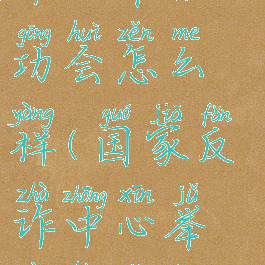 gōng huì zěn me
功会怎么
yàng guó jiā fǎn
样(国家反
zhà zhōng xīn jǔ
诈中心举